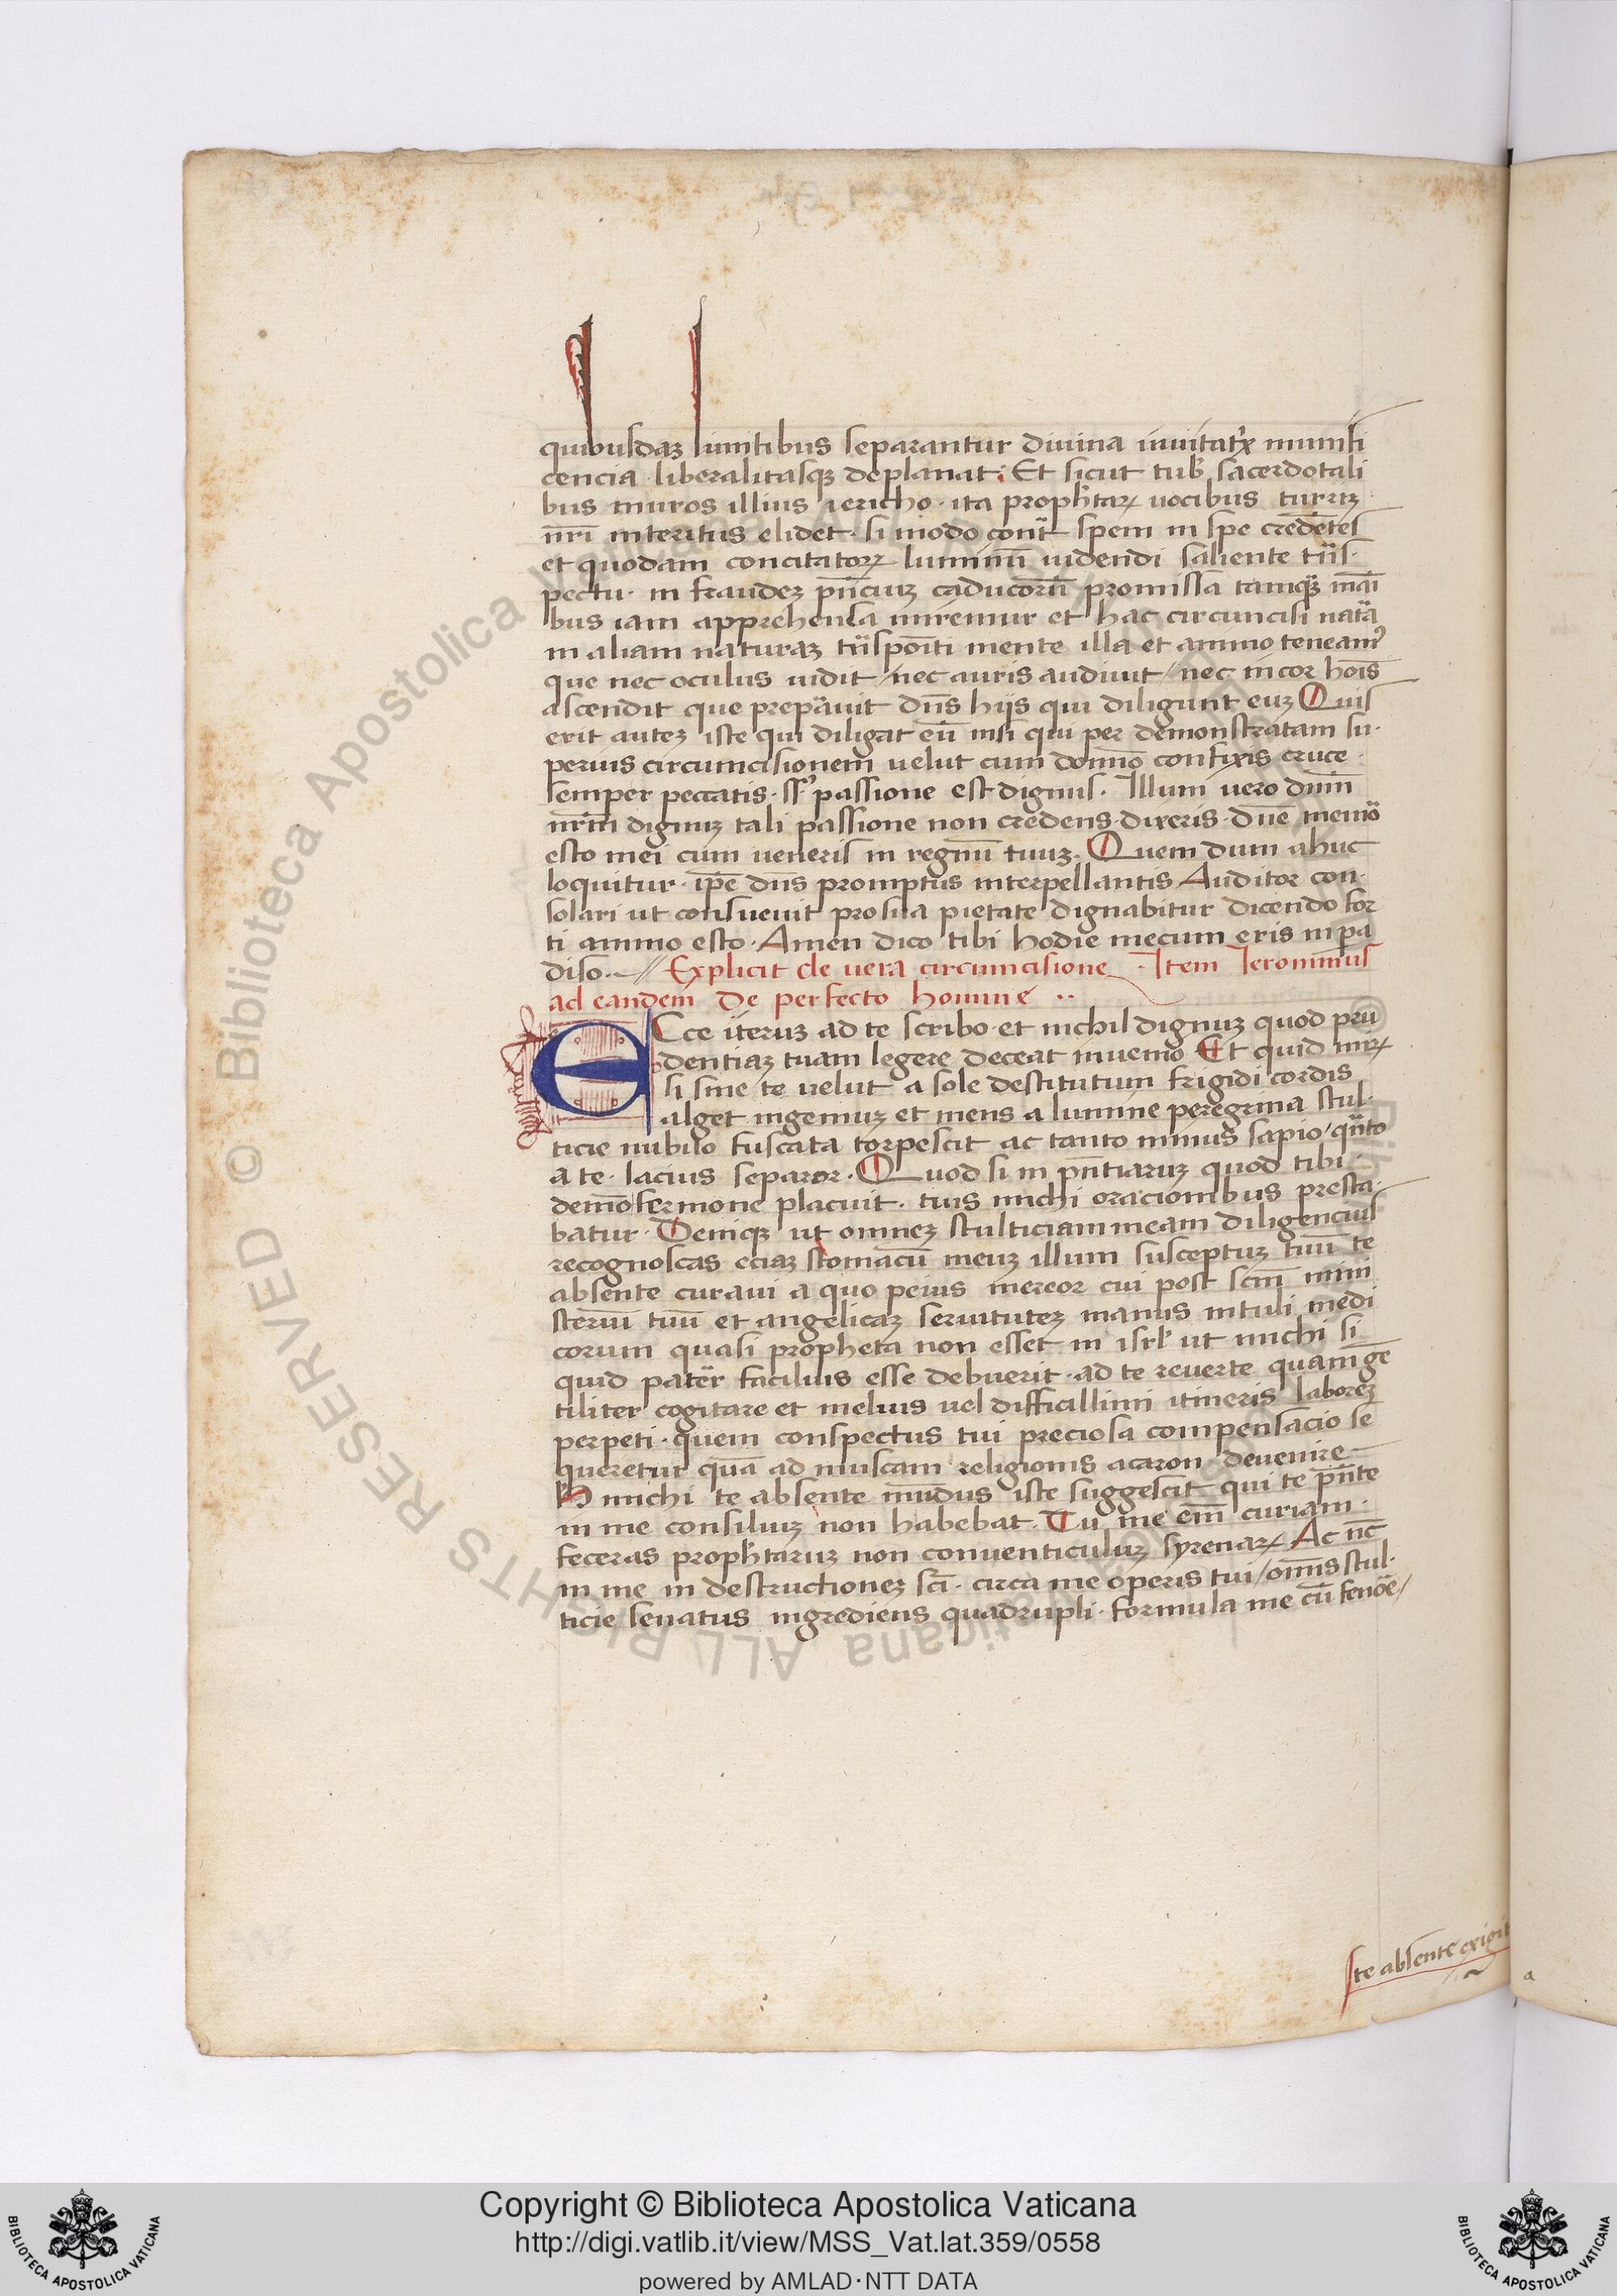 quibusdaꝫ limitibus separantur diuina inuitatꝛx munifi
cencia liberalitasqꝫ deplanat. Et sicut tub sacerdotali
bus muros illius iericho · ita prophetaꝝ uocibus turrꝫ
nr̄i interitus elidet · si modo cont̃ spem in spe credētes
et quodam concitatoꝝ luminū uidendi saliente tiis·
pectu · in fraudeꝫ pn̄ciuꝫ caducorū promissa tamqꝫ mai
bus iam apprehensa miremur et hac circuncisi nata
in aliam naturaꝫ tiispoīti mente illa et animo teneam᾽
que nec oculus uidit / nec auris audiuit / nec in cor hoīs
ascendit que prepauit dn̄s hijs qui diligunt euꝫ Quis
erit auteꝫ iste qui diligat eū nisi qui per demonstratam su·
perius circumcisionem uelut cum domīo confixis cruce ·
semper peccatis · ss᾽ passione est dignus · Illum uero dn̄m
nr̄m dignuꝫ tali passione non credens · dixeris · dn̄e memō
esto mei cum ueneris in regnū tuuꝫ · Quem dum ahuc
loquitur · ip̄e dn̄s promptus interpellantis Auditor con·
solari ut consueuit pro sua pietate dignabitur dicendo for
ti animo esto · Amen dico tibi hodie mecum eris in pa
diso · // Explicit de uera circumcisione · Item Ieronimus
ad eandem De perfecto homine ··
Ecce iteruꝫ ad te scribo · et nichil dignuꝫ quod pru
dentiaꝫ tuam legere deceat inuenio Et quid miꝝ
si sine te uelut a sole destitutum frigidi cordis
alget ingeniuꝫ et mens a lumine peregrina stul·
ticie nubilo fuscata torpescit ac tanto minus sapio / qn̄to
a te · lacius separor · Quod si in pn̄tiaruꝫ quod tibi ·
demō sermone placuit · tuis michi oracionibus presta·
batur · Deniqꝫ ut omneꝫ stulticiam meam diligencius
recognoscas eciaꝫ stomacū meuꝫ illum susceptuꝫ tuū te
absente curaui a quo peius mereor cui post scm̄ mini
steriū tuū et angelicaꝫ seruituteꝫ manus intuli medi
corum quasi propheta non esset in isrl᾽ ut michi si
quid patēr facilius esse debuerit · ad te reuerte quam gē
tiliter cogitare et melius uel difficillimi itineris laboreꝫ
perpeti · quem conspectus tui preciosa compensacio se
queretur quā ad muscam religionis acaron deuenire
H michi te absente mūdus iste suggescit qui te pn̄te
in me consiliuꝫ non habebat · Tu me em̄ curiam ·
feceras prophetaruꝫ non conuenticuluꝫ syrenaꝝ Ac nc̄
in me in destructioneꝫ sc̄i · circa me operis tui / om̄s stul·
ticie senatus ingrediens quadrupli · formula me cū fenōe /
te absente exigit
Copyright © Biblioteca Apostolica Vaticana
http://digi.vatlib.it/view/MSS_Vat.lat.359/0558
powered by AMLAD·NTT DATA